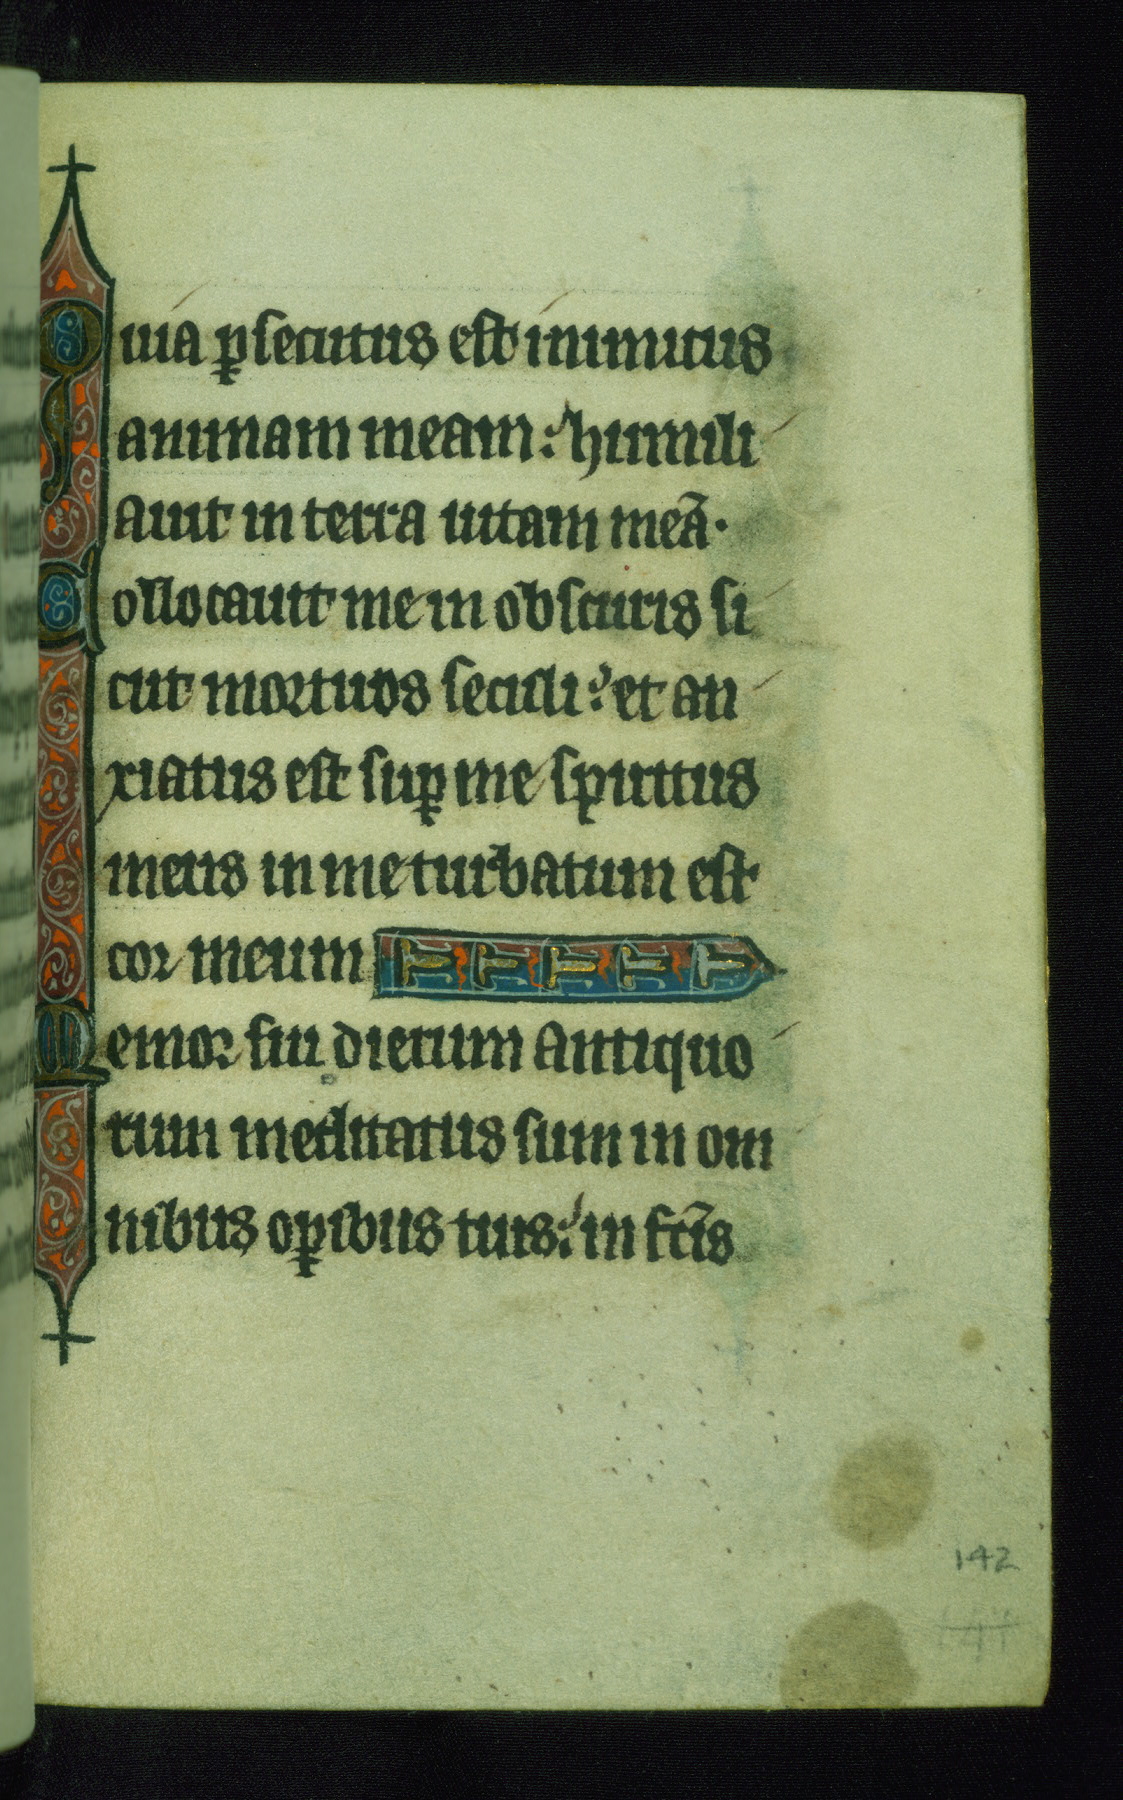 Quia ꝑsecutus est inimicus
animam meam: humili
auit in terra uitam meã.
Collocauit me in obscuris si
cut mortuos seculi: et an
xiatus est suꝑ me spiritus
meus in me turbatum est
cor meum
Memor fui dierum antiquo
rum meditatus sum in om
nibus oꝑibus tuis: in fc̃is
142